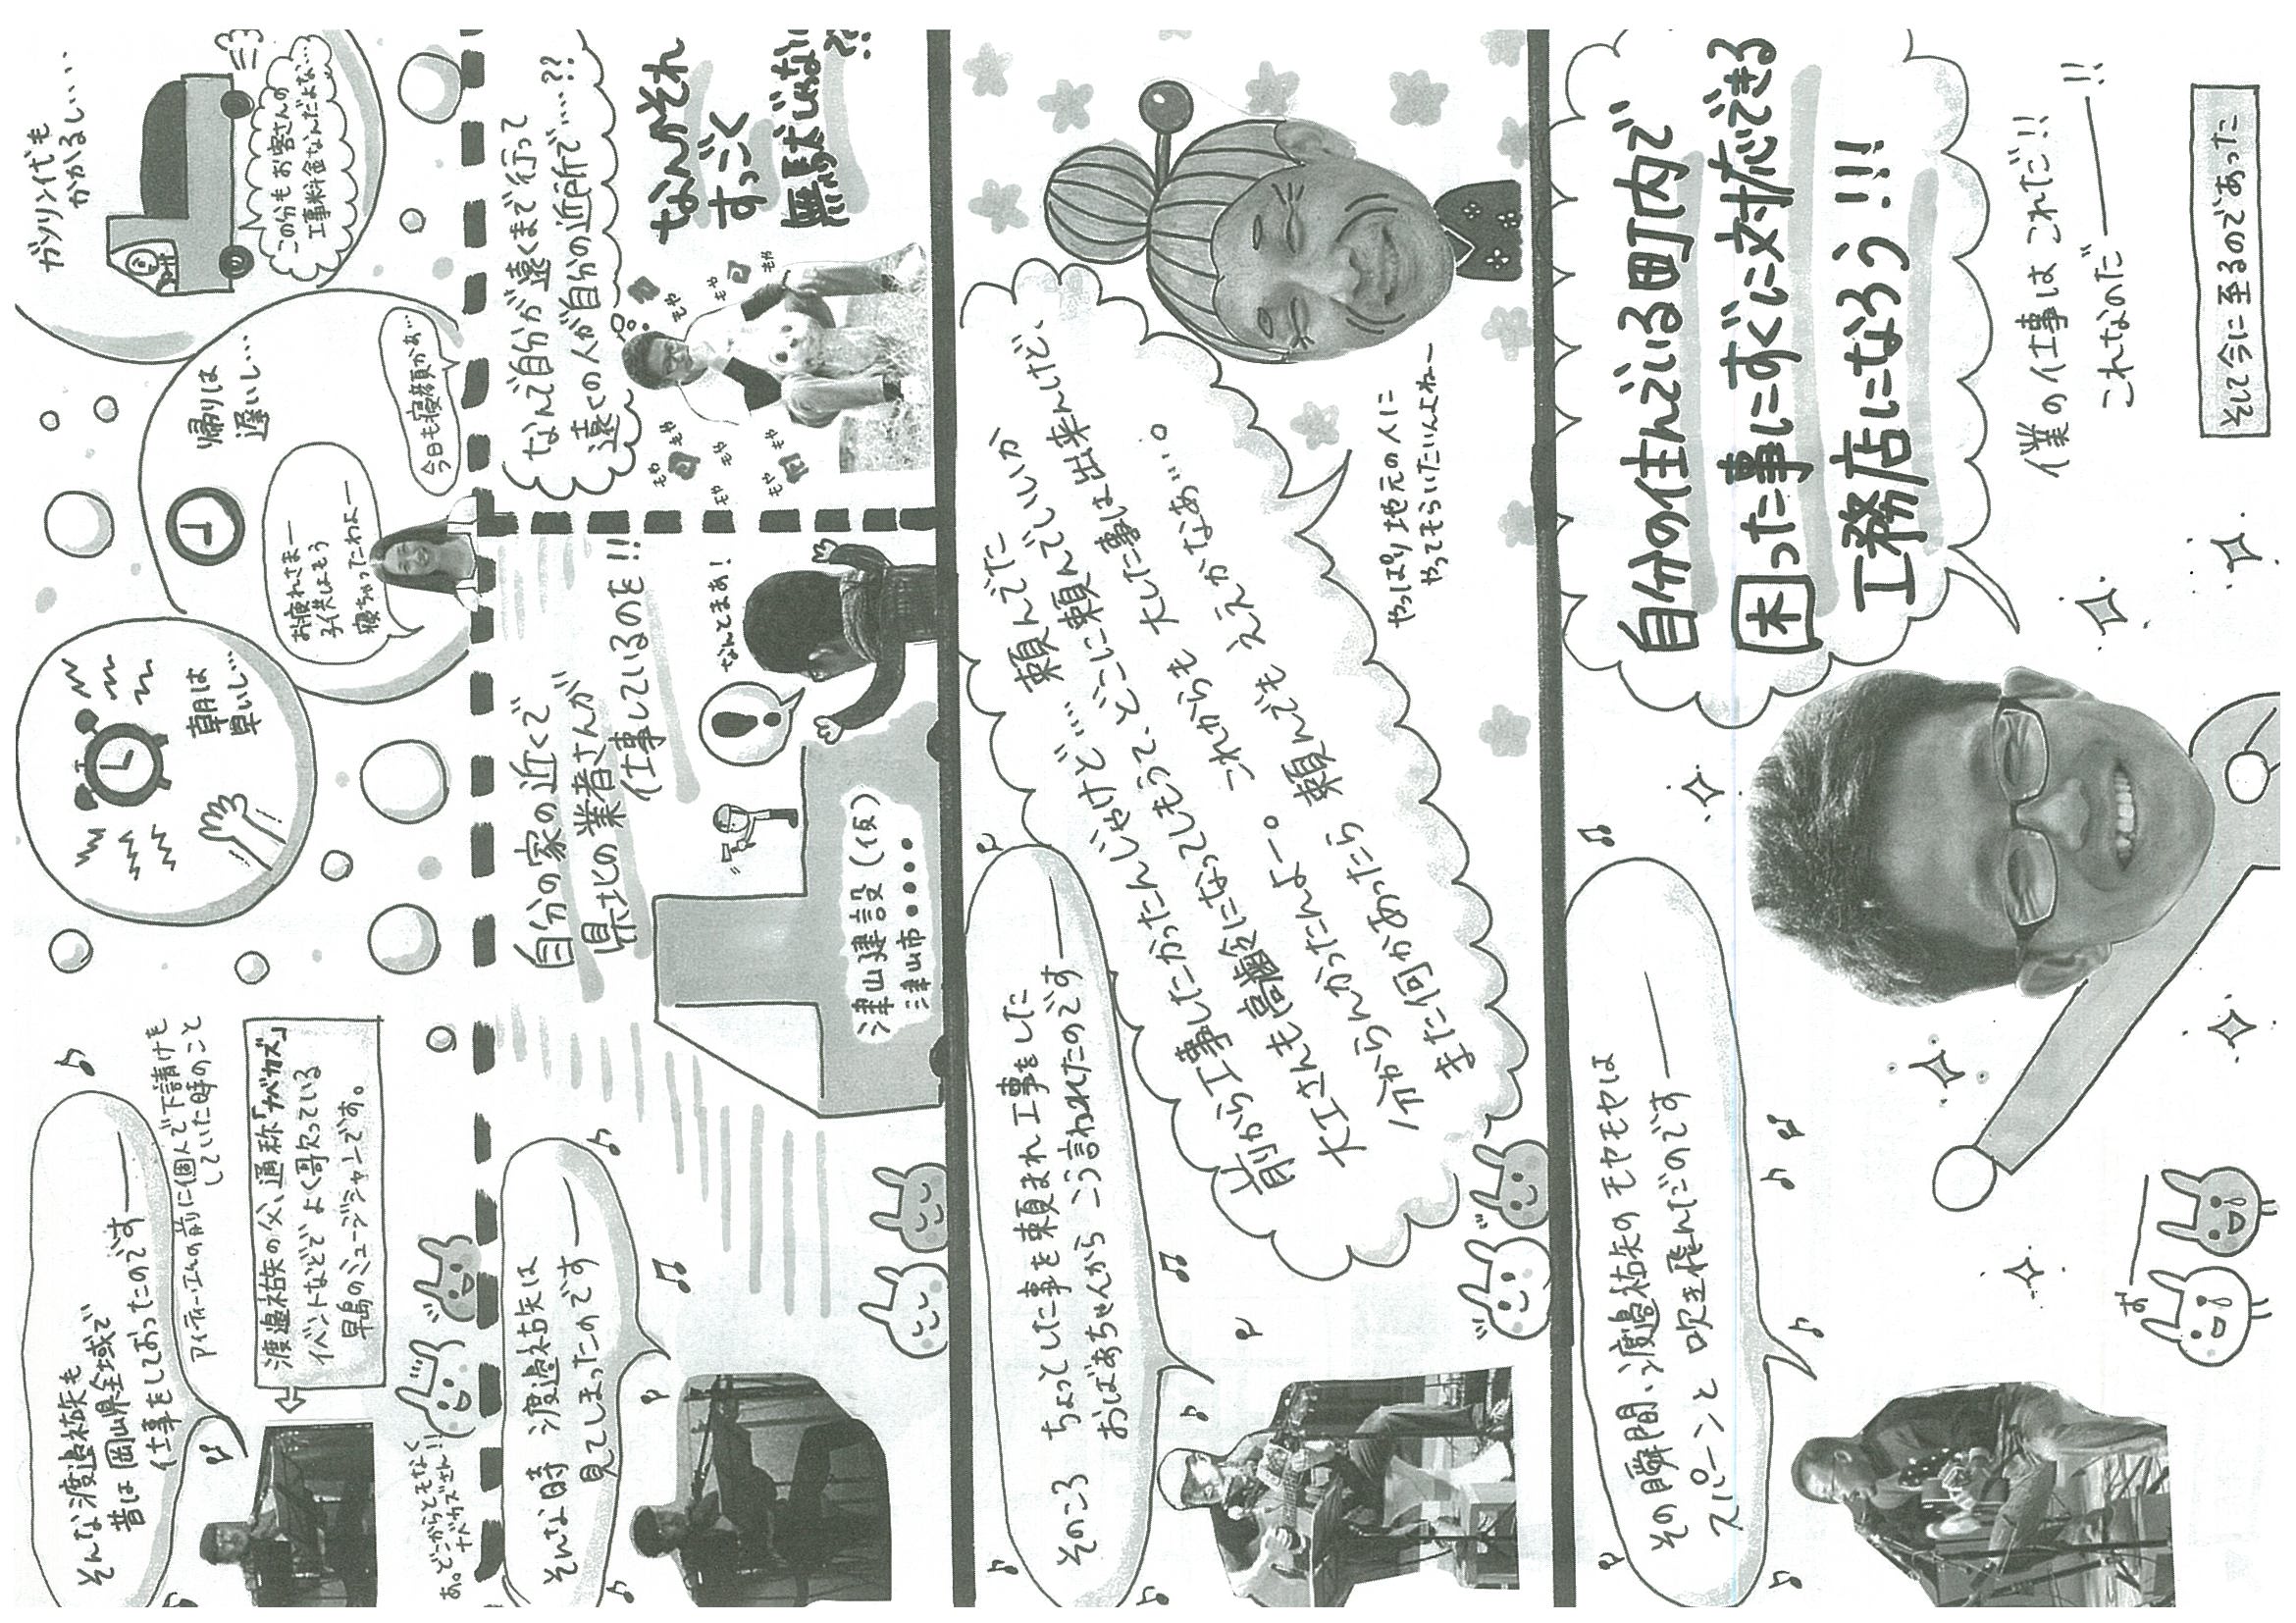 そんな渡邉祐矢も
昔は岡山県全域で
仕事をしておったのです――
アイディーエムの前に個人で下請けも
していた時のこと
渡邉祐矢の父、通称「ナベカズ」
イベントなどでよく歌っている
早島のミュージシャンです。
あ。どこからともなく
ナベカズさん!!
朝は
早いし…
帰りは
遅いし…
お疲れさまー
子供はもう
寝ちゃってこわよー
今日も寝顔かぁ…
ガソリン代も
かかるしい…
この分もお客さんの
工事料金なんだよな…
そんな時 渡邉祐矢は
見てしまったのです――
自分の家の近くで
県北の業者さんが
仕事しているのを!!
なんてまあ!
津山建設(仮)
津山市●●●●
なんで自分が遠くまで行って
遠くの人が自分の近所で…??
もや
もや
もや
もや
もや
もや
なんかそれ
すっごく
無駄じゃない
で!?
そのころ ちょっとした事を頼まれ工事をした
おばあちゃんから こう言われたのです――
前から工事したかったんじゃけど… 頼んでた
大工さんも高齢になってしもうて、どこに頼んでいいか
分からんかったんよー。 大した事は出来んけど、
これからも
また何かあったら 頼んでも ええかなあ…。
やっぱり地元の人に
やってもらいたいんよねー
その瞬間、渡邉祐矢のモヤモヤは
スパーンと 吹き飛んだのです――
自分の住んでいる町内で
困った事にすぐに対応できる
工務店になろう!!!
僕の仕事は これだ!!
これなのだ――!!
そして今に至るのであった